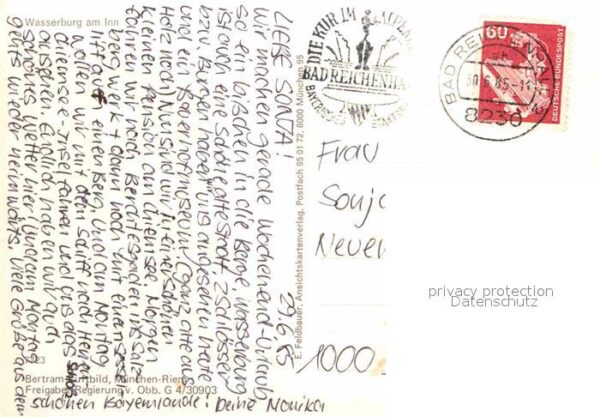 Wasserburg am Inn
29.6.85
LIEBE SONJA!
Wir machen gerade Wochenend-Urlaub
so ein bißchen in die Berge. Wasserburg
ist ja echt eine tolle Stadt, 2 Schlösser
bzw. Burgen haben wir uns angesehen heute
und ein Bauernhofmuseum (ganz alte aus
Holz noch) Nun sind wir in einer schönen
kleinen Pension am Chiemsee. Morgen
fahren wir nach Berchtesgaden ins Salz-
bergw. + dann noch mit einem Sessel-
lift auf einen Berg. Und am Montag
wollen wir mit dem Schiff nach Herren-
chiemsee-Insel fahren und uns das Schloß
ansehen. Endlich haben wir auch
schönes Wetter hier und am Montag
geht's wieder heimwärts. Viele Grüße aus dem
schönen Bayernlande! Deine Monika
E. Feldbauer, Ansichtskartenverlag, Postfach 95 01 72, 8000 München 95
Bertram-Luftbild, München-Riem
Freigabe Regierung v. Obb. G 4/30903
DIE KUR IM ALPEN
BAD REICHENHA
BAYERISCHES STAATS
BAD REICHENHALL
8230
60
DEUTSCHE BUNDESPOST
Frau
Sonja
1000
privacy protection
Datenschutz